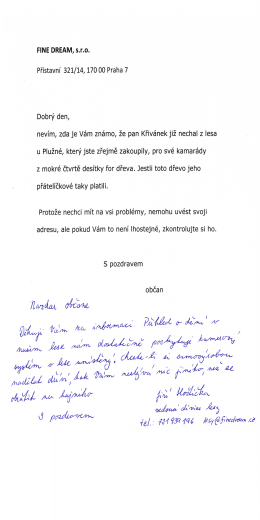 FINE DREAM, s.r.o.
Přístavní 321/14, 170 00 Praha 7
Dobrý den,
nevím, zda je Vám známo, že pan Křivánek již nechal z lesa
u Plužné, který jste zřejmě zakoupily, pro své kamarády
z mokré čtvrtě desítky for dřeva. Jestli toto dřevo jeho
přátelíčkové taky platili.
Protože nechci mít na vsi problémy, nemohu uvést svoji
adresu, ale pokud Vám to není lhostejné, zkontrolujte si ho.
S pozdravem
občan
Nazdar občane
Děkuji Vám za informaci Přehled o dění v
našem lese nám dostatečně poskytuje kamerový
systém v lese umístěný. Chcete-li si samovýrobou
nadělat dříví, tak Vám nezbývá nic jiného, než se
obrátit na hajného
S pozdravem
Jiří
lesa
tel.: 721 939 196